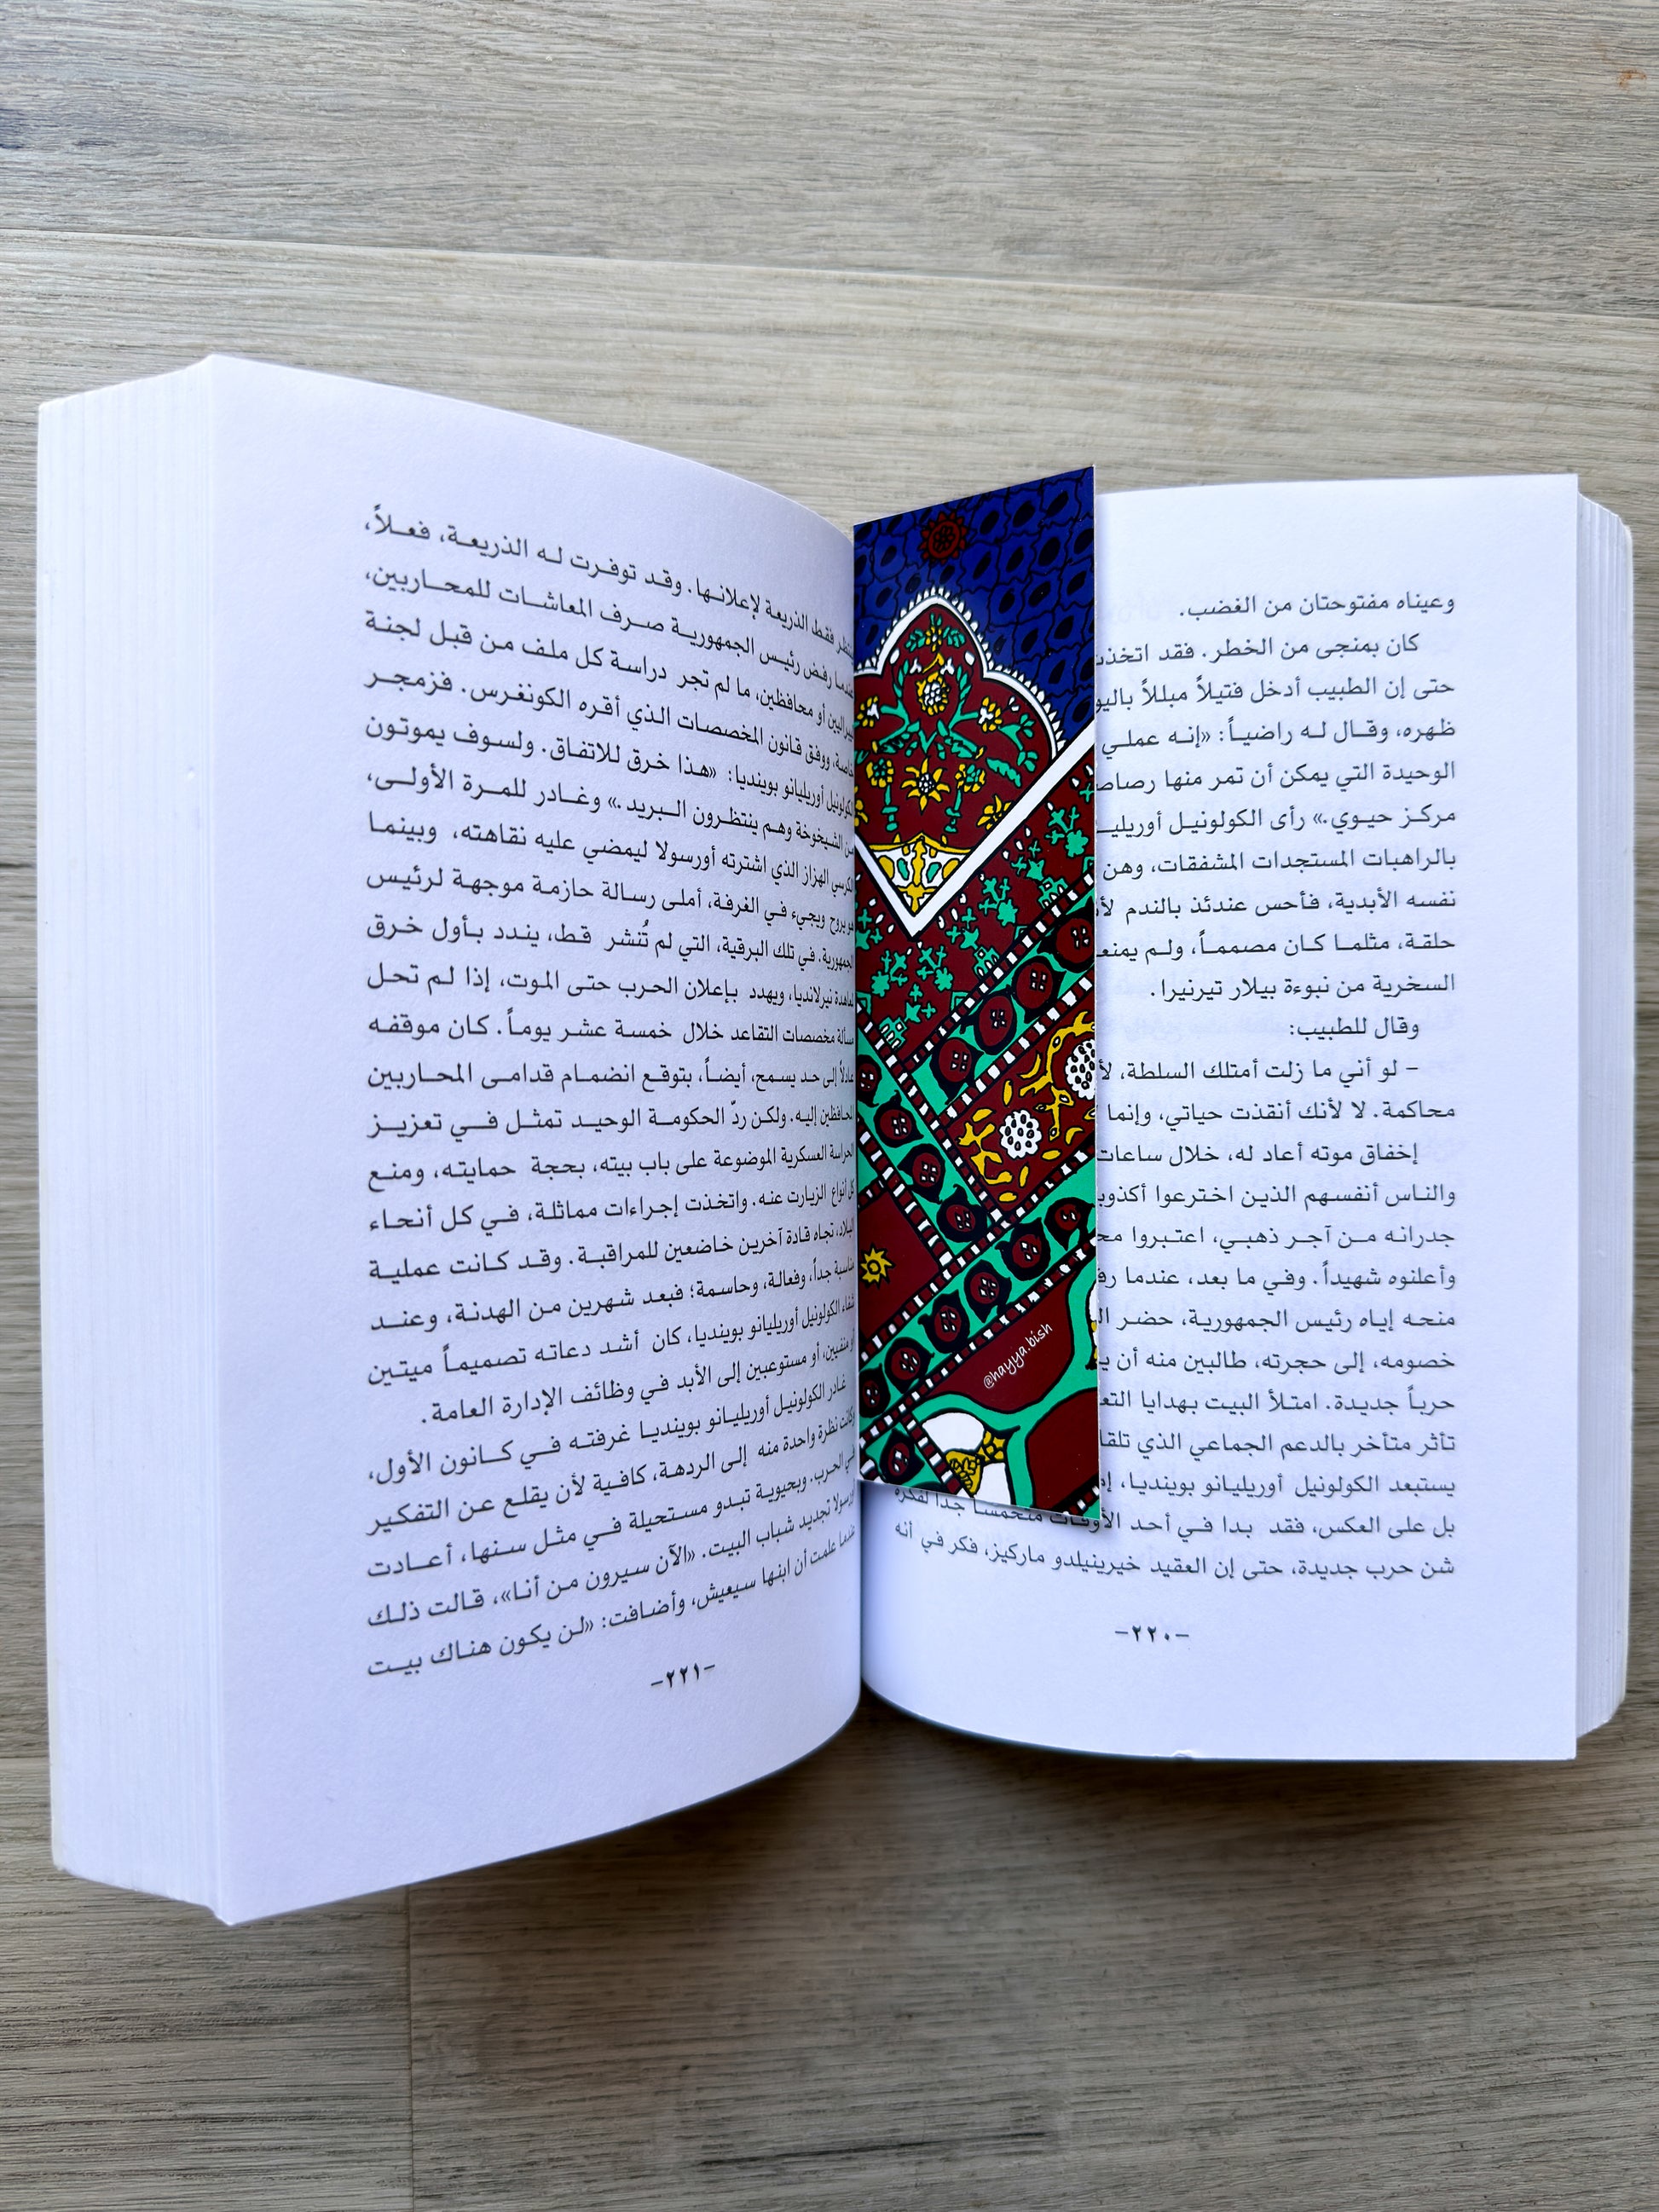 وعيناه مفتوحتان من الغضب.
كان بمنجى من الخطر. فقد اتخذت
حتى إن الطبيب أدخل فتيلاً مبللاً باليو
ظهره، وقـال لـه راضيـاً: «إنـه عملـي
الوحيدة التي يمكن أن تمر منها رصاصـ
مركـز حيـوي.» رأى الكولونيـل أوريليـ
بالراهبات المستجدات المشفقات، وهن
نفسه الأبدية، فأحس عندئذ بالندم
حلقة، مثلمـا كـان مصممـاً، ولـم يمنعـ
السخرية من نبوءة بيلار تيرنيرا.
وقال للطبيب:
- لو أني ما زلت أمتلك السلطة،
محاكمة. لا لأنك أنقذت حياتي، وإنما
إخفاق موته أعاد له، خلال ساعات
والنـاس أنفسـهم الذين اخترعوا أكذوبـ
جدرانـه مـن آجـر ذهبـي، اعتـبروا
وأعلنوه شهيداً. وفـي ما بعد، عندما
منحـه إياه رئيس الجمهورية، حضـر
خصومه، إلى حجرته، طالبين منه أن
حربـاً جديدة. امتـلأ البيت بهدايا
تأثر متأخر بالدعم الجماعي الذي
يستبعد الكولونيـل أوريليـانو بوينديـا،
بل على العكس، فقد بدا فـي أحد الأوقات متحمسـاً جداً لفكرة
شن حرب جديدة، حتى إن العقيد خيرينيلدو ماركيز، فكر في أنه
-٢٢٠-
فقط الذريعة لإعلانـها. وقـد توفـرت لـه الذريعـة، فعـلاً،
عندمـا رفـض رئيـس الجمهوريـة صـرف المعاشـات للمحـاربين،
ليبراليين أو محافظين، ما لم تجر دراسة كل ملف مـن قبل لجنـة
خاصة، ووفق قانون المخصصات الـذي أقـره الكونغـرس. فزمجـر
الكولونيل أوريليانو بوينديا: «هـذا خرق للاتفاق. ولسـوف يموتـون
من الشيخوخة وهـم ينتظـرون الـبريد.» وغـادر للمـرة الأولـى،
الكرسي الهزاز الذي اشترته أورسولا ليمضي عليه نقاهته، وبينمـا
هو يروح ويجيء فـي الغرفة، أملى رسـالة حازمـة موجهـة لرئيس
الجمهورية. في تلك البرقية، التي لم تُنشر قـط، ينـدد بـأول خـرق
لمعاهدة نيرلانديا، ويهدد بـإعلان الحـرب حتـى الموت، إذا لـم تحـل
مسألة مخصصات التقاعد خلال خمسـة عشـر يومـاً. كـان موقفـه
عادلاً إلى حـد يسـمح، أيضـاً، بتوقـع انضمـام قدامـى المحـاربين
المحافظين إليـه. ولكـن ردّ الحكومـة الوحيـد تمثـل فـي تعزيـز
الحراسة العسكرية الموضوعة على باب بيته، بحجة حمايته، ومنـع
كل أنواع الزيارت عنـه. واتخـذت إجـراءات مماثلـة، فـي كل أنحـاء
البلاد، تجاه قادة آخرين خاضعين للمراقبـة. وقـد كـانت عمليـة
مناسبة جداً، وفعالة، وحاسمة؛ فبعد شهرين من الهدنة، وعنـد
شفاء الكولونيل أوريليانو بوينديا، كان أشد دعاته تصميمـاً ميتين
أو منفيين، أو مستوعبين إلى الأبد فـي وظائف الإدارة العامة.
غادر الكولونيـل أوريليـانو بوينديـا غرفتـه فـي كـانون الأول،
وكانت نظرة واحدة منه إلى الردهة، كافيـة لأن يقلـع عـن التفكـير
في الحرب. وبحيويـة تبـدو مسـتحيلة فـي مثـل سـنها، أعـادت
أورسولا تجديد شباب البيت. «الآن سيرون مـن أنـا»، قـالت ذلـك
عندما علمت أن ابنها سـيعيش، وأضـافت: «لـن يكون هنـاك بيـت
-٢٢١-
@hayya.bish